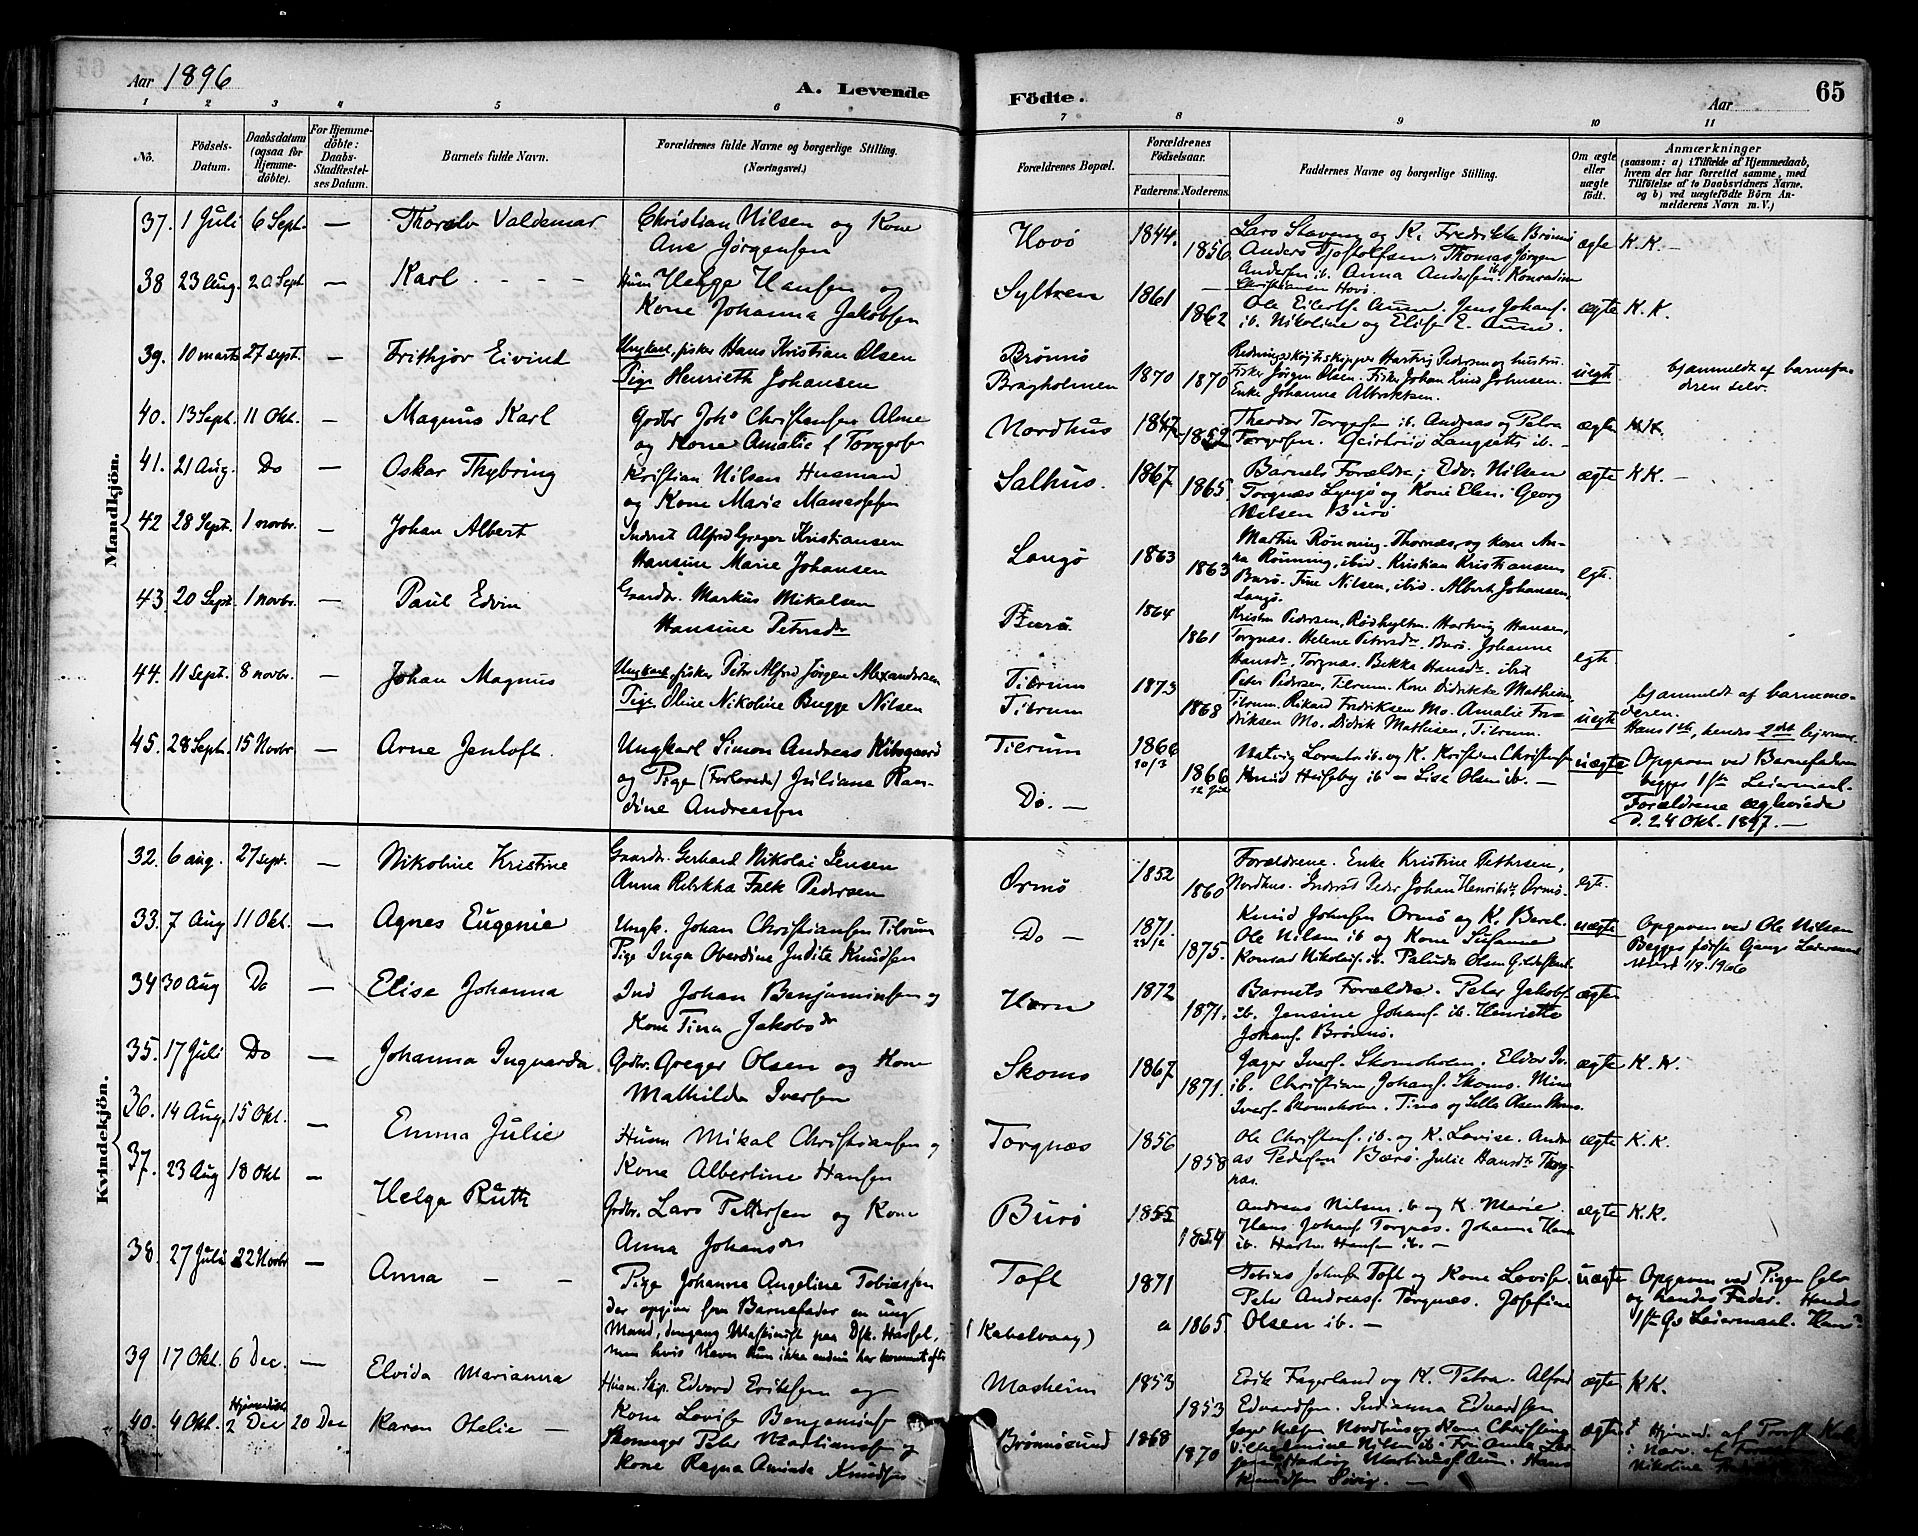 Aar 1896
A. Levende
Födte.
Aar
65
1 2 3 4 5 6 7 8 9 10 11
No.
Födsels-
Datum.
Daabsdatum
(ogsaa for
Hjemme-
döbte).
For Hjemme-
döbte:
Daabs-
Stadfæstel-
ses Datum.
Barnets fulde Navn.
Forældrenes fulde Navne og borgerlige Stilling.
(Næringsvei.)
Forældrenes Bopæl.
Forældrenes
Födselsaar.
Faderens. Moderens.
Faddernes Navne og borgerlige Stilling.
Om ægte
eller
uægte
födt.
Anmærkninger
(saasom: a) i Tilfælde af Hjemmedaab,
hvem der har forrettet samme, med
Tilföielse af to Daabsvidners Navne,
og b) ved uægtefödte Börn An-
melderens Navn m.V.)
Mandkjön.
37. 1 Juli 6 Sept. — Thoralv Valdemar
Christian Nilsen og Kone
Ane Jørgensen
Hovø 1844. 1856
Anders Tjostolfsen, Thomas Jørgen
Christiansen Hovø.
ægte K.K. —
38 23 Aug. 20 Sept — Karl - - - -
Husm Helge Hansen og
Kone Johanna Jakobsen
Syltern 1861 1862
ib. Nikoline og Elise E. Aunm.
ægte K.K.
39. 10 marts 27 sept. — Frithjov Eivind
Ungkarl, fisker Hans Kristian Olsen
Pige Henrieth Johansen
Brønnø
Bragholmen 1870 1870
Redningsskøiteskipper Hartvig Pedersen og hustru.
Fisker Jørgen Olsen. Fisker Johan Lind Johnsen.
Enke Johanna Albriktsen.
uegt.
bjanmeldt af barnefa-
deren selv.
40. 13 Sept. 11 Okt. — Magnus Karl
Gdbr Johs Christensen Alme
og Kone Amalie f Torgersen
Nordhus 1847 1852
Theodor Torgersen ib. Andreas og Petra
Torgersen. Geirtrud Langseth ib. —
ægte K.K.
41. 21 Aug. Do — Oskar Thybring
Kristian Nilsen Husmand
og Kone Marie Manassesen
Salhus. 1867 1865
Barnets Forældre; Edv. Nilsen
Torgnæs Langø og Kone Elen. Georg
Nilsen Burø
ægte K.K. —
42 28 Sept. 1 novbr. — Johan Albert
Inderst Alfred Greger Kristiansen
Hansine Marie Johansen
Langø 1863 1863
Martin Rønning, Thornæs, og kone An-
na Rønning, ibid. Kristian Kristiansen,
Burø. Tine Nilsen, ibid. Albert Johansen,
Langø.
egt.
43. 20 Sept. 1 novbr. — Paul Edvin
Gaardbr. Markus Mikalsen
Hansine Petersdr
Burø. 1864 1861
Kristen Pedersen, Rødhylten. Hartvig Hansen,
Torgnæs. Helene Petersdr, Burø. Johanne
Hansdr, Torgnæs. Bekka Hansdr. ibid
egt.
44. 11 Sept. 8 novbr. — Johan Magnus
Ungkarl, fisker Peter Alfred Jørgen Alexandersen
Pige Oline Nikoline Bugge Nilsen
Tilrum
Tilrum 1873 1868
Peter Pedersen, Tilrum. Kone Didrikke Mathisen,
Tilrum. Rikard Fredriksen Mo. Amalie Fre-
driksen Mo. Didrik Mathisen, Tilrum.
uegte
bjanmeldt af barnemo-
deren.
Hans 1ste, hendes 2det lejerm.
45. 28 Sept. 15 Novbr — Arne Jentoft.
Ungkarl Simon Andreas
og Pige (Forlovede) Juliane Ran-
dine Andreassen
Tilrum
Do. — 1866 20/3 1866 12 Juli
Knud Husby ib — Lise Olsen ib. —
uægte
Opgaven ved Barnefaderen
begges 1ste Leiermaal.
Forældrene ægteviede
d. 24 Okt. 1897. —
Kvindekjön.
32. 6 aug. 27 sept. — Nikoline Kristine
Gaardbr. Gerhard Nikolai Jensen
Anna Rebekka Falk Pedersen
Ormø 1852 1860
Forældrene. Enke Kristine Pettersen,
Nordhus. Inderst Peder Johan Henriksen Ormø.
egt.
33. 7 Aug 11 Okt. — Agnes Eugenie
Ungk. Johan Christiansen Tilrum
Pige Inga Oberdine Judite Knudsen
Do — 1871. 1875.
Knud Johnsen Ormø og K. Berel.
Ole Nilsen ib og Kone Susanne
Konrad Nikolais. ib. Paluda Olsen
uægte
Opgaven ved Ole Nilsen
Begges første Gangs Leiermaal
34 30 Aug Do — Elise Johanna
Ind Johan Benjaminsen og
Kone Tina Jakobsdr
Horn 1872 1871.
Barnets Forældre. Peter Jakobs.
ib. Jensine Johans. ib. Henriette
Johans. Brønnø.
ægte
35. 17 Juli Do — Johanna Ingvarda
Gdbr. Greger Olsen og Kone
Mathilda Iversen
Skoms 1867 1871.
Jager Ivers. Skomsholm. Eldor Iv.
ib. Christian Johans. Skoms. Mina
Ivers. Skomsholm. Tina og Sella Olsen Skoms.
ægte K.K.
36. 14 Aug. 15 Okt. — Emma Julie
Husm Mikal Christiansen og
Kone Albertine Hansen
Torgnæs 1856 1858
Ole Christens. ib. og K. Lovise. Andre
as Pedersen Bærø. Julie Hansdr Torg-
næs.
ægte K.K.
37. 23 Aug 18 Okt. — Helga Ruth
Gdbr. Lars Pettersen og Kone
Anna Johansdr
Burø 1855 1854
Andreas Nilsen ib og K. Marie.
Hans Johans Torgnæs. Johanna Hans
ib. Hartv. Hansen ib. —
ægte K.K.
38. 27 Juli 22 Novbr — Anna — —
Pige Johanna Angeline Tobiassen
der opgiver som Barnefader en ung
Mand, dengang Maskinist paa Dsk. Hassel,
men hvis Navn hun ikke endnu har kommet efter
Toft
(Kabelvaag) 1871 ca 1865
Tobias Johnsen Toft og Kone Lovise.
Peter Andreas. Torgnæs. Josefine
Olsen ib. —
uægte
Opgaven ved Pigen selv
og hendes Fader. Hendes
1ste Gs Leiermaal. Hans
39 17 Okt. 6 Dec. — Elvida Marianna
Husm. Skp. Edvard Eriksen og
Kone Lovise Benjamins.
Mosheim 1853 1853
Erik Fagerland og K. Petra. Alfred
Edvardsen. Indianna Edvardsen
ægte KK.
40. 4 Okt. Hjemmedøbt 2 Dec 20 Dec Karen Otelie —
Skomager Peter Martinussen og
Kone Ragna Aminda Knudsen
Brønnøsund 1868 1870
Jager Nilsen Nordhus og Kone Christine
Vilhelmine Nilsen ib. Fru Anna
Hartvig Martinus. Aun. Hans
Knudsen Søvig. —
ægte
Hjemmed. af Provst
i Nærv. af
Nikoline